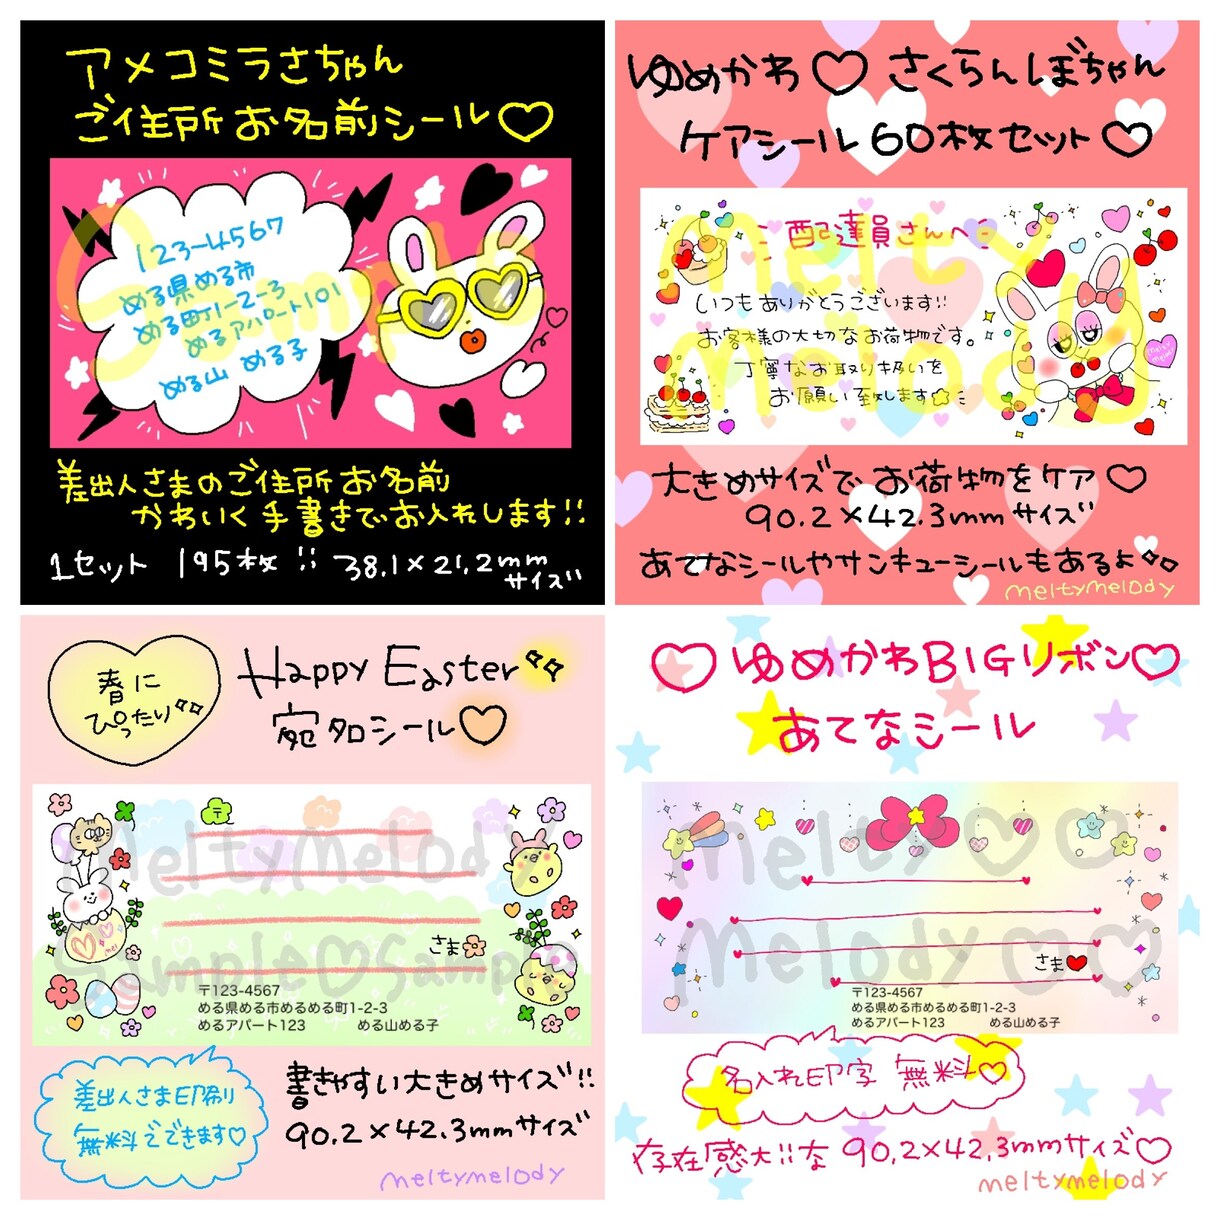 アメコミラさちゃん
ご住所お名前シール♡
123-4567
める県める市
める町1-2-3
めるアパート101
める山 める子
差出人さまのご住所お名前
かわいく手書きでお入れします!!
1セット 195枚!! 38.1×21.2mm
サイズ
ゆめかわ♡さくらんぼちゃん
ケアシール60枚セット♡
配達員さんへ
いつもありがとうございます!!
お客様の大切なお荷物です。
丁寧なお取り扱いを
お願い致します☆
Melty
Melody
melty melody
大きめサイズでお荷物をケア♡
90.2×42.3mmサイズ
あてなシールやサンキューシールもあるよ
meltymelody
春に
ぴったり
Happy Easter
宛名シール♡
〒
MeltyMelody
さま
Sample♡Sample
〒123-4567
める県める市めるめる町1-2-3
めるアパート123 める山める子
差出人さま印刷り
無料でできます♡
書きやすい大きめサイズ!!
90.2×42.3mmサイズ
meltymelody
♡ゆめかわBIGリボン♡
あてなシール
Melty♡♡
Melody♡♡
さま
〒123-4567
める県める市めるめる町1-2-3
めるアパート123 める山める子
名入れ印字 無料♡
存在感大!!な 90.2×42.3mmサイズ♡
meltymelody